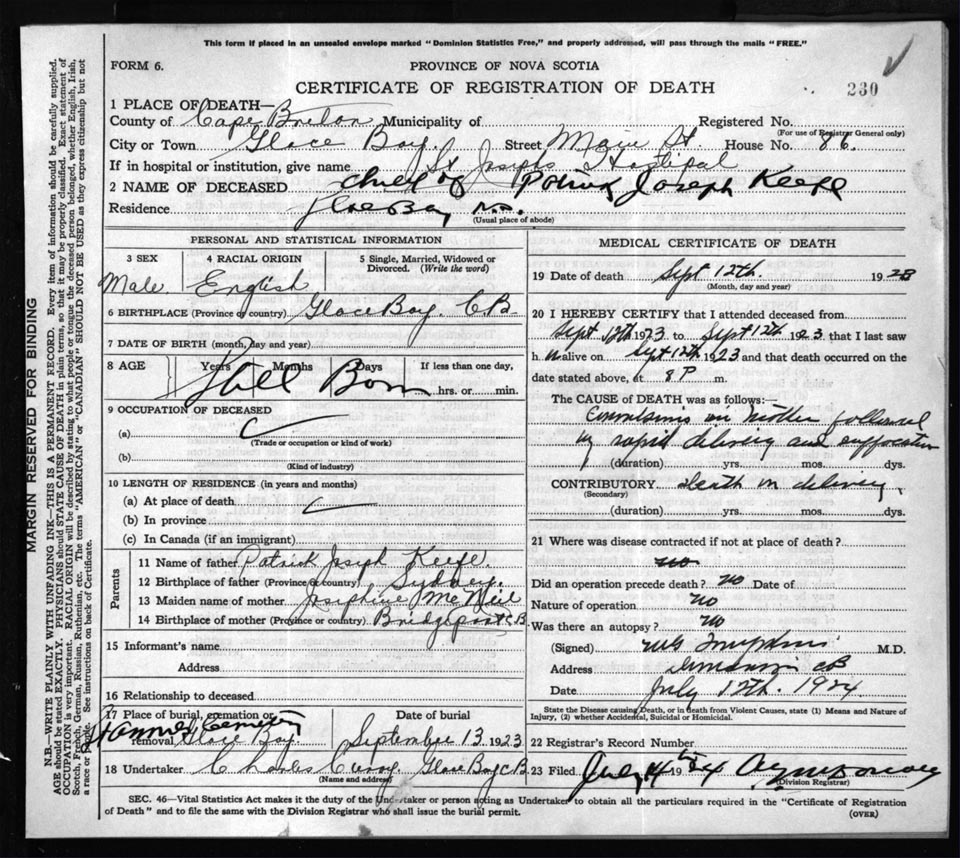 This form if placed in an unsealed envelope marked "Dominion Statistics Free," and properly addressed, will pass through the mails "FREE."
FORM 6.
PROVINCE OF NOVA SCOTIA
CERTIFICATE OF REGISTRATION OF DEATH
230
1 PLACE OF DEATH—
County of Cape Breton Municipality of Registered No.
(For use of Registrar General only)
City or Town Glace Bay. Street Main St. House No. 86.
If in hospital or institution, give name St Josephs Hospital
2 NAME OF DECEASED child of Patrick Joseph Keefe
Residence
(Usual place of abode)
PERSONAL AND STATISTICAL INFORMATION
3 SEX 4 RACIAL ORIGIN 5 Single, Married, Widowed or Divorced. (Write the word)
Male. English
6 BIRTHPLACE (Province or country) Glace Bay. C B.
7 DATE OF BIRTH (month, day and year)
8 AGE Years Months Days If less than one day,
Still Born hrs. or min.
9 OCCUPATION OF DECEASED
(a)
(Trade or occupation or kind of work)
(b)
(Kind of industry)
10 LENGTH OF RESIDENCE (in years and months)
(a) At place of death
(b) In province
(c) In Canada (if an immigrant)
Parents
11 Name of father Patrick Joseph Keefe.
12 Birthplace of father (Province or country) Sydney.
13 Maiden name of mother Josephine McNeil
14 Birthplace of mother (Province or country) Bridgeport C B.
15 Informant's name
Address
16 Relationship to deceased
17 Place of burial, cremation or removal Cemetery Glace Bay.
Date of burial September 13. 1923
18 Undertaker Charles Curry. Glace Bay C B.
(Name and address)
MEDICAL CERTIFICATE OF DEATH
19 Date of death Sept 12th. 1923
(Month, day and year)
20 I HEREBY CERTIFY that I attended deceased from
Sept 12th 1923 to Sept 12th 1923 that I last saw
h alive on Sept 12th 1923 and that death occurred on the
date stated above, at 8 P m.
The CAUSE OF DEATH was as follows:
in mother followed
by rapid delivery and suffocation
(duration) yrs. mos. dys.
CONTRIBUTORY. death in delivery.
(Secondary)
(duration) yrs. mos. dys.
21 Where was disease contracted if not at place of death?
no
Did an operation precede death? no Date of
Nature of operation no
Was there an autopsy? no
(Signed) M.D.
Address CB
Date July 12th. 1924
State the Disease causing Death, or in death from Violent Causes, state (1) Means and Nature of Injury, (2) whether Accidental, Suicidal or Homicidal.
22 Registrar's Record Number
23 Filed July 14th 1924
(Division Registrar)
SEC. 46—Vital Statistics Act makes it the duty of the Undertaker or person acting as Undertaker to obtain all the particulars required in the "Certificate of Registration
of Death" and to file the same with the Division Registrar who shall issue the burial permit.
(OVER)
MARGIN RESERVED FOR BINDING
N.B.—WRITE PLAINLY WITH UNFADING INK—THIS IS A PERMANENT RECORD. Every item of information should be carefully supplied.
AGE should be stated EXACTLY. PHYSICIANS should STATE CAUSE OF DEATH in plain terms, so that it may be properly classified. Exact statement of
OCCUPATION is very important. RACIAL ORIGIN will be described by stating to what people or tongue the deceased person belonged, whether English, Irish,
Scotch, French, German, Russian, Ruthenian, etc. The terms "AMERICAN" or "CANADIAN" SHOULD NOT BE USED as they express citizenship but not
a race or people. See instructions on back of Certificate.